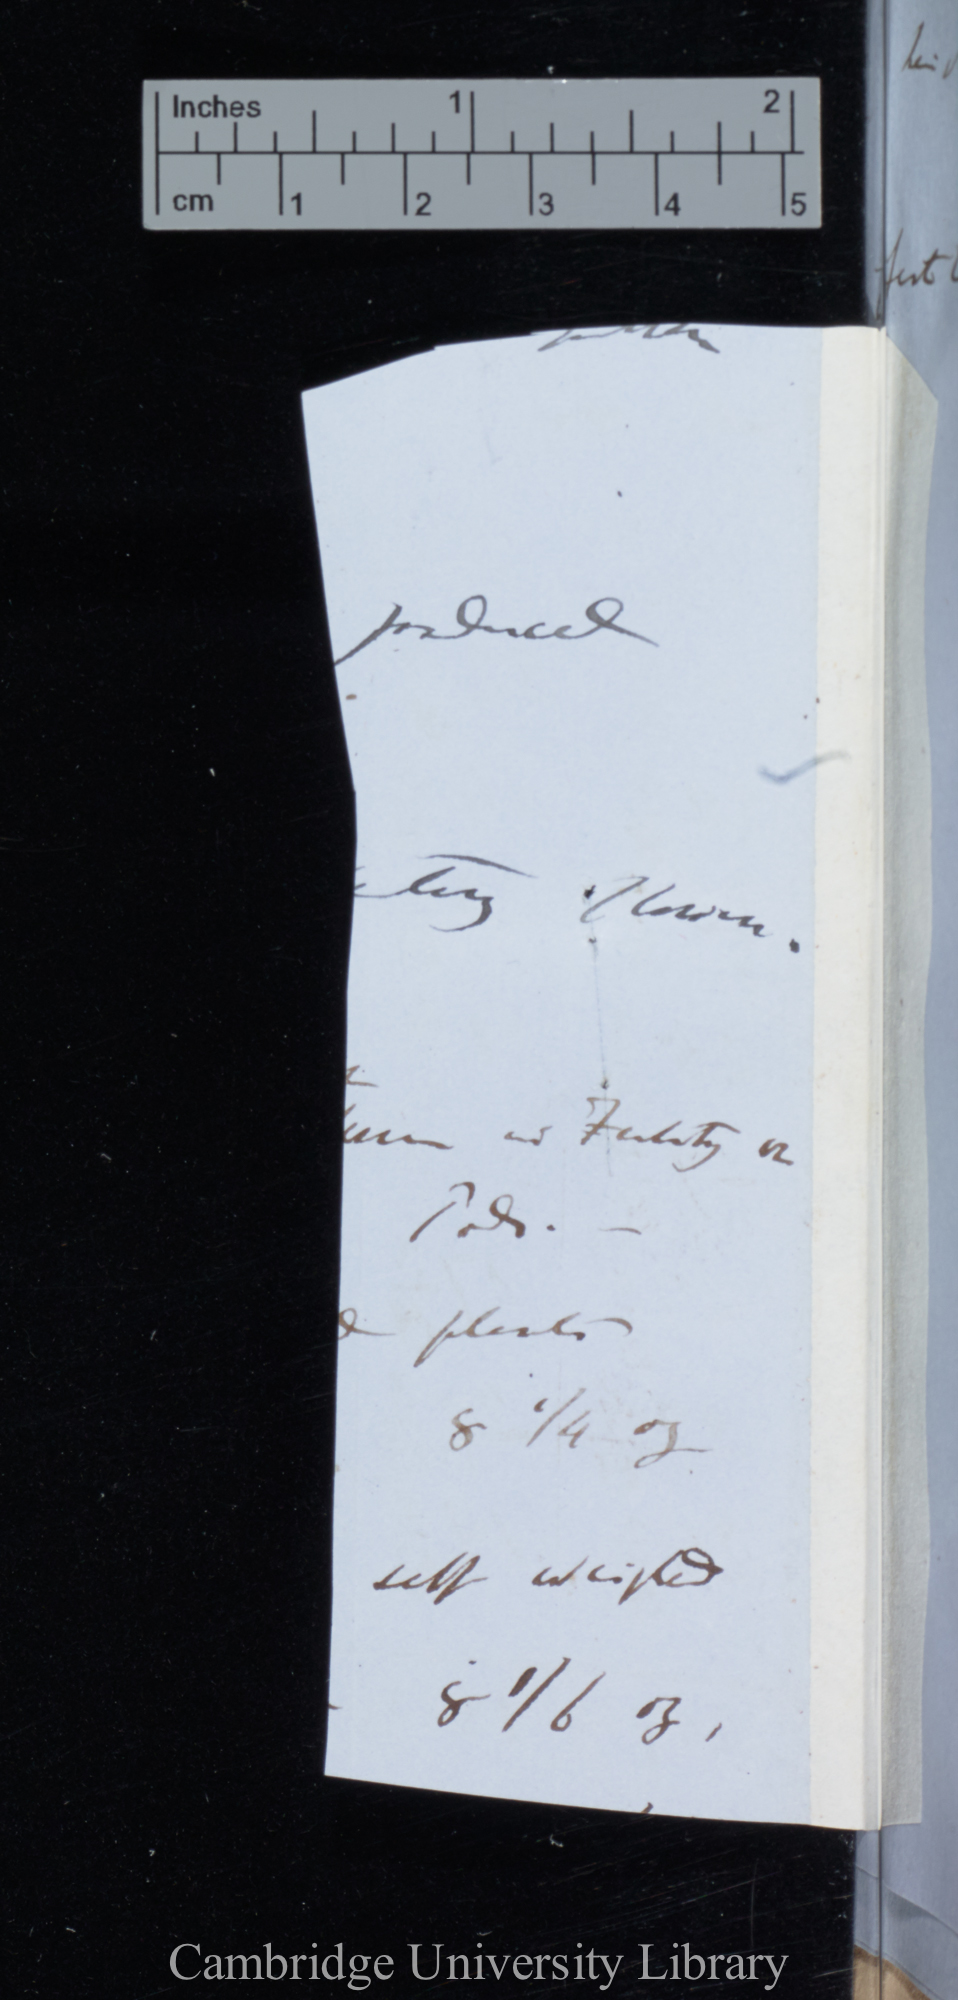 Inches 1 2
cm 1 2 3 4 5
produced
flowers.
in Fertility or
Pods. —
plants
8 1/4 oz
self weighed
8 1/6 oz,
Cambridge University Library